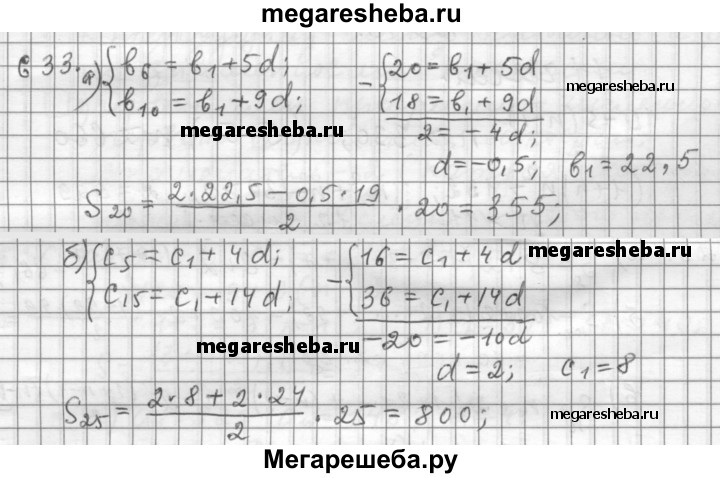 megaresheba.ru
633. а) { b₆ = b₁ + 5d; - { 20 = b₁ + 5d
b₁₀ = b₁ + 9d; 18 = b₁ + 9d
megaresheba.ru
megaresheba.ru
2 = -4d;
d = -0,5; b₁ = 22,5
S₂₀ = (2·22,5 - 0,5·19)/2 · 20 = 355;
б) { c₅ = c₁ + 4d; - { 16 = c₁ + 4d
megaresheba.ru
c₁₅ = c₁ + 14d; 36 = c₁ + 14d
megaresheba.ru
-20 = -10d
d = 2; c₁ = 8
S₂₅ = (2·8 + 2·24)/2 · 25 = 800;
megaresheba.ru
Мегарешеба.ру